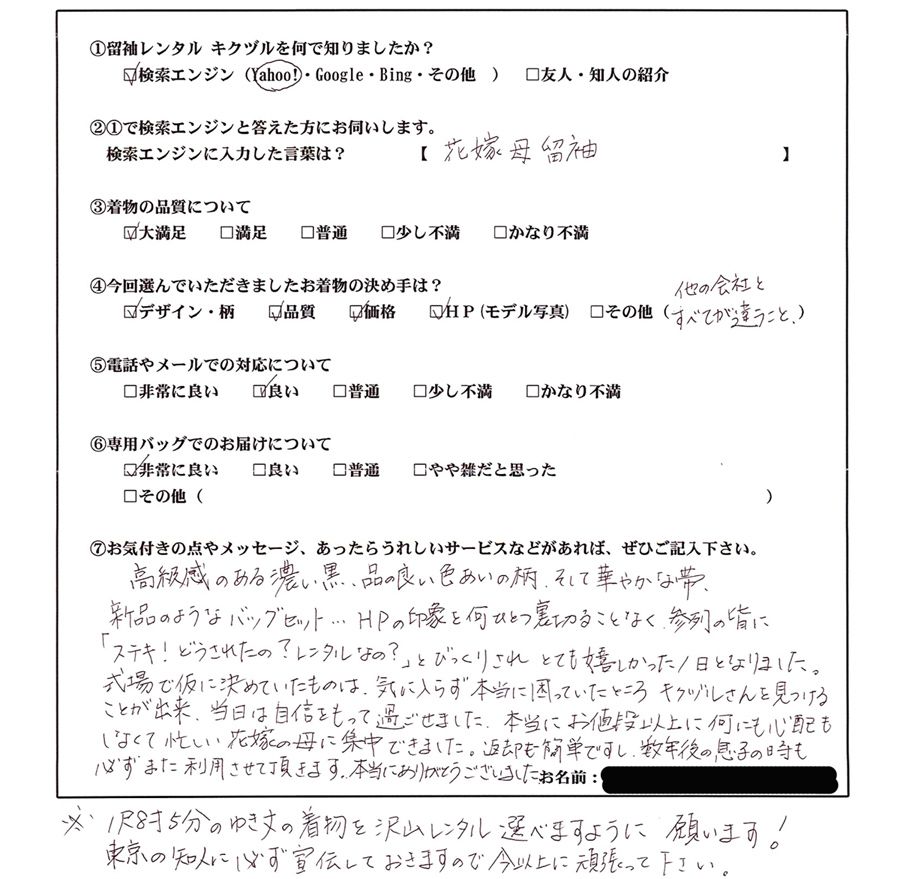 ①留袖レンタル キクヅルを何で知りましたか？
☑検索エンジン（Yahoo!・Google・Bing・その他　）　□友人・知人の紹介
②①で検索エンジンと答えた方にお伺いします。
検索エンジンに入力した言葉は？　【 花嫁 母 留袖　】
③着物の品質について
☑大満足　□満足　□普通　□少し不満　□かなり不満
④今回選んでいただきましたお着物の決め手は？
☑デザイン・柄　☑品質　☑価格　☑ＨＰ(モデル写真)　□その他（他の会社と
すべてが違うこと、）
⑤電話やメールでの対応について
□非常に良い　☑良い　□普通　□少し不満　□かなり不満
⑥専用バッグでのお届けについて
☑非常に良い　□良い　□普通　□やや雑だと思った
□その他（　）
⑦お気付きの点やメッセージ、あったらうれしいサービスなどがあれば、ぜひご記入下さい。
高級感のある濃い黒、品の良い色あいの柄、そして華やかな帯、
新品のようなバッグセット… HPの印象を何ひとつ裏切ることなく、参列の皆に
「ステキ！どうされたの？レンタルなの？」とびっくりされ とても嬉しかった1日となりました。
式場で仮に決めていたものは、気に入らず本当に困っていたところ キクヅルさんを見つける
ことが出来、当日は自信をもって過ごせました、本当にお値段以上に何にも心配も
しなくて忙しい花嫁の母に集中できました。返却も簡単ですし、数年後の息子の時も
必ずまた利用させて頂きます。本当にありがとうございました お名前：
※ 1尺8寸5分のゆき丈の着物を沢山レンタル選べますように 願います！
東京の知人に必ず宣伝しておきますので今以上に頑張って下さい。